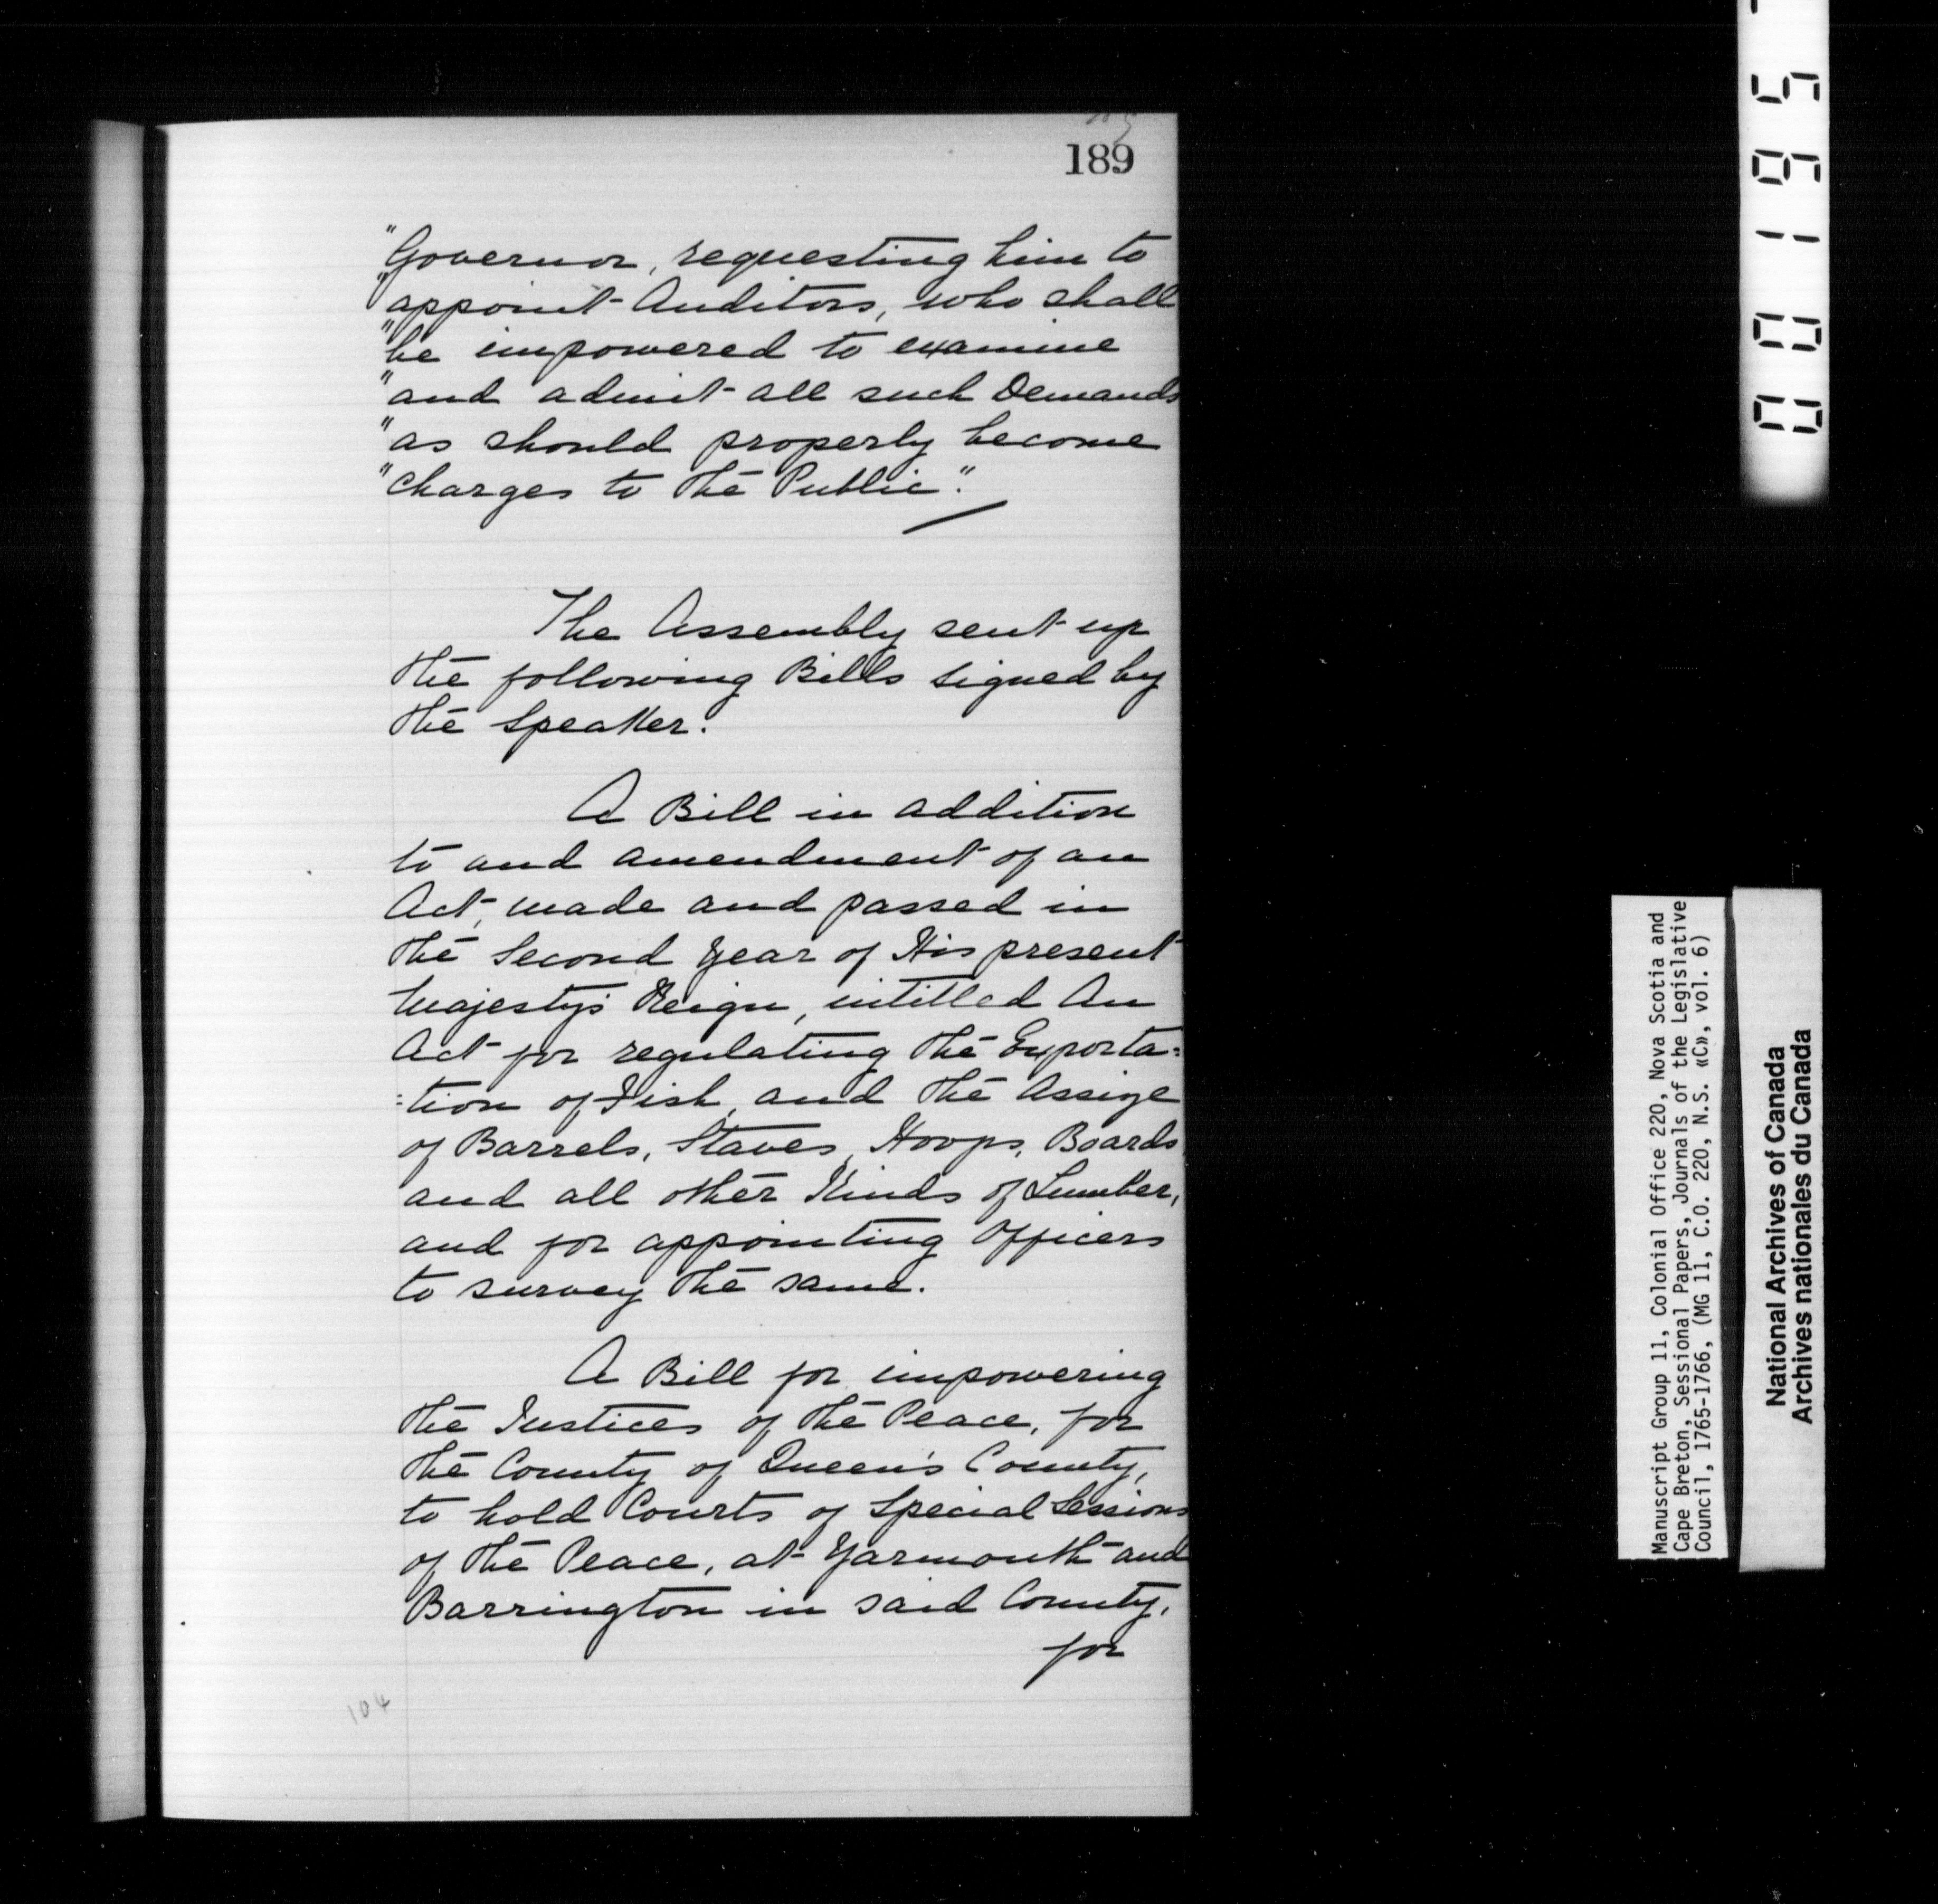 189
"Governor, requesting him to
"appoint Auditors, who shall
"be impowered to examine
"and admit all such Demands
"as should properly become
"charges to the Public."
The Assembly sent up
the following Bills signed by
the Speaker.
A Bill in addition
to and amendment of an
Act, made and passed in
the Second Year of His present
Majesty's Reign, intitled An
Act for regulating the Exporta=
=tion of Fish, and the Assize
of Barrels, Staves, Hoops, Boards
and all other Kinds of Lumber,
and for appointing Officers
to survey the same.
A Bill for impowering
the Justices of the Peace, for
the County of Queen's County,
to hold Courts of Special Sessions
of the Peace, at Yarmouth and
Barrington in said County,
for
104
00195
Manuscript Group 11, Colonial Office 220, Nova Scotia and
Cape Breton, Sessional Papers, Journals of the Legislative
Council, 1765-1766, (MG 11, C.O. 220, N.S. «C», vol. 6)
National Archives of Canada
Archives nationales du Canada